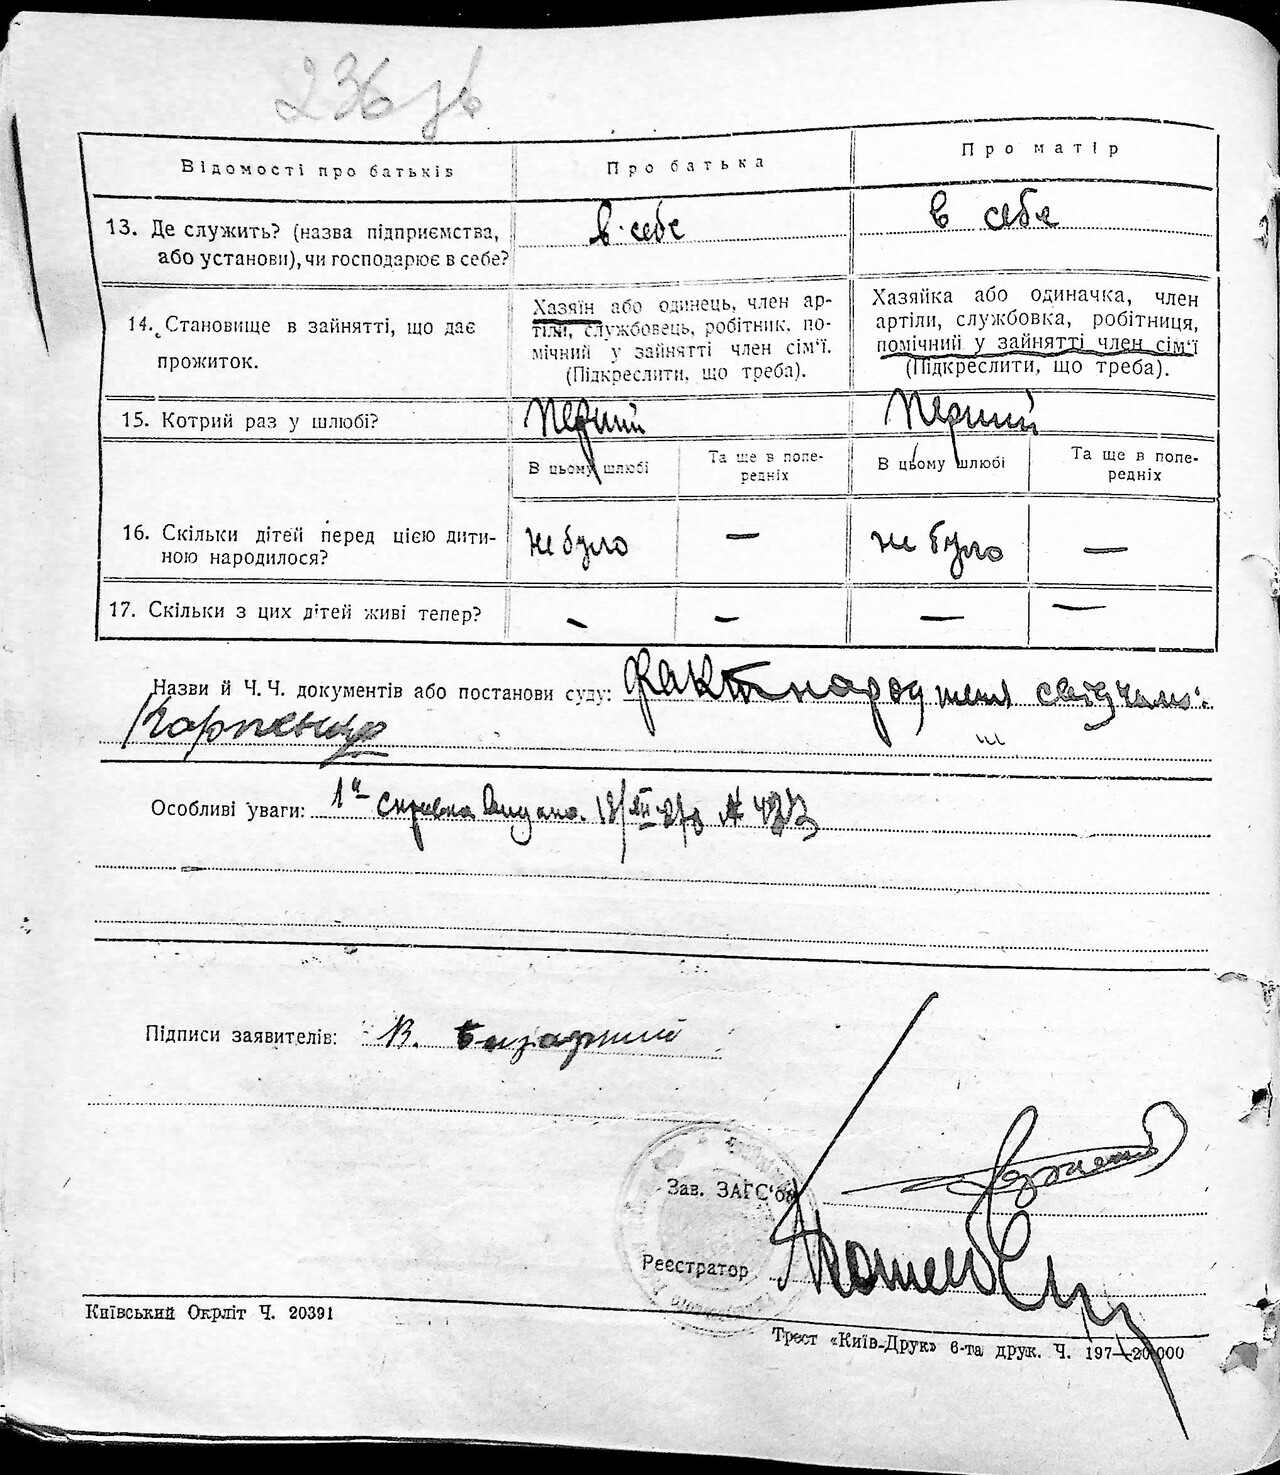 236 зв
Відомості про батьків
Про батька
Про матір
13. Де служить? (назва підприємства,
або установи), чи господарює в себе?
в себе
в себе
14. Становище в зайнятті, що дає
прожиток.
Хазяїн або одинець, член ар-
тіли, службовець, робітник, по-
мічний у зайнятті член сім'ї.
(Підкреслити, що треба).
Хазяйка або одиначка, член
артіли, службовка, робітниця,
помічний у зайнятті член сім'ї
(Підкреслити, що треба).
15. Котрий раз у шлюбі?
Перший
Перший
В цьому шлюбі
Та ще в попе-
редніх
В цьому шлюбі
Та ще в попе-
редніх
16. Скільки дітей перед цією дити-
ною народилося?
не було
—
не було
—
17. Скільки з цих дітей живі тепер?
— — — —
Назви й Ч. Ч. документів або постанови суду: Факт народження
Особливі уваги: видано.
Підписи заявителів: В.
Зав. ЗАГС'ом
Реєстратор
Київський Окрліт Ч. 20391
Трест «Київ-Друк» 6-та друк. Ч. 197—20.000